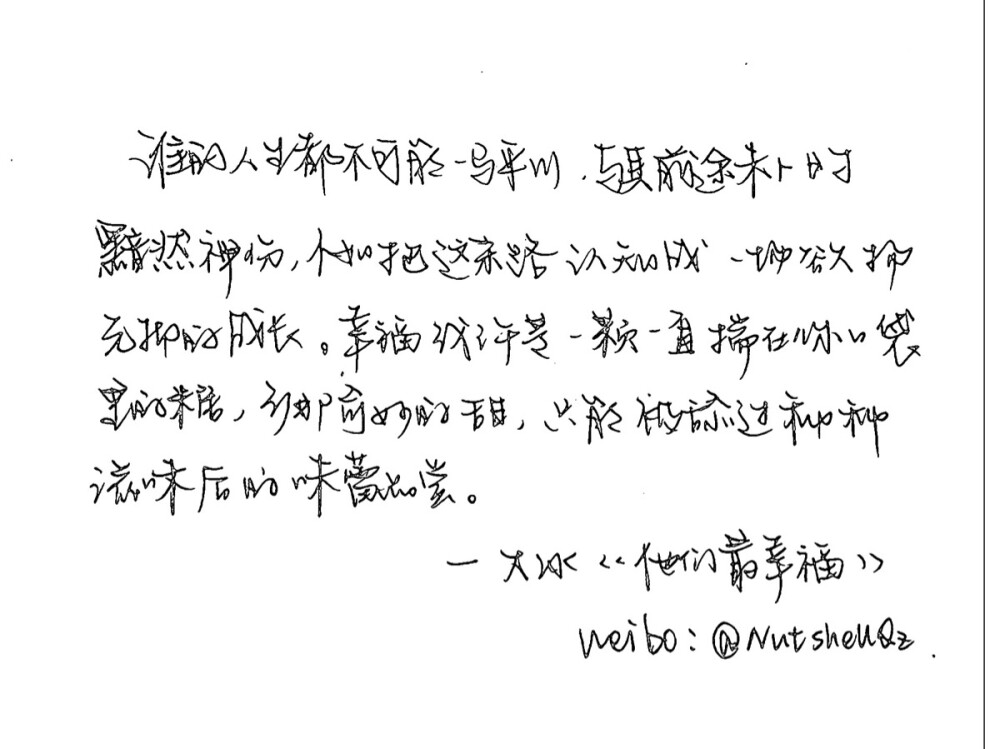 谁的人生都不可能一马平川，与其前途未卜时
黯然神伤，不如把这条路认知成一场欲扬
先抑的成长。幸福或许是一颗一直揣在你口袋
里的糖，但那奇妙的甜，只能被尝过种种
滋味后的味蕾品尝。
— 大冰《他们最幸福》
weibo: @NutshellQz